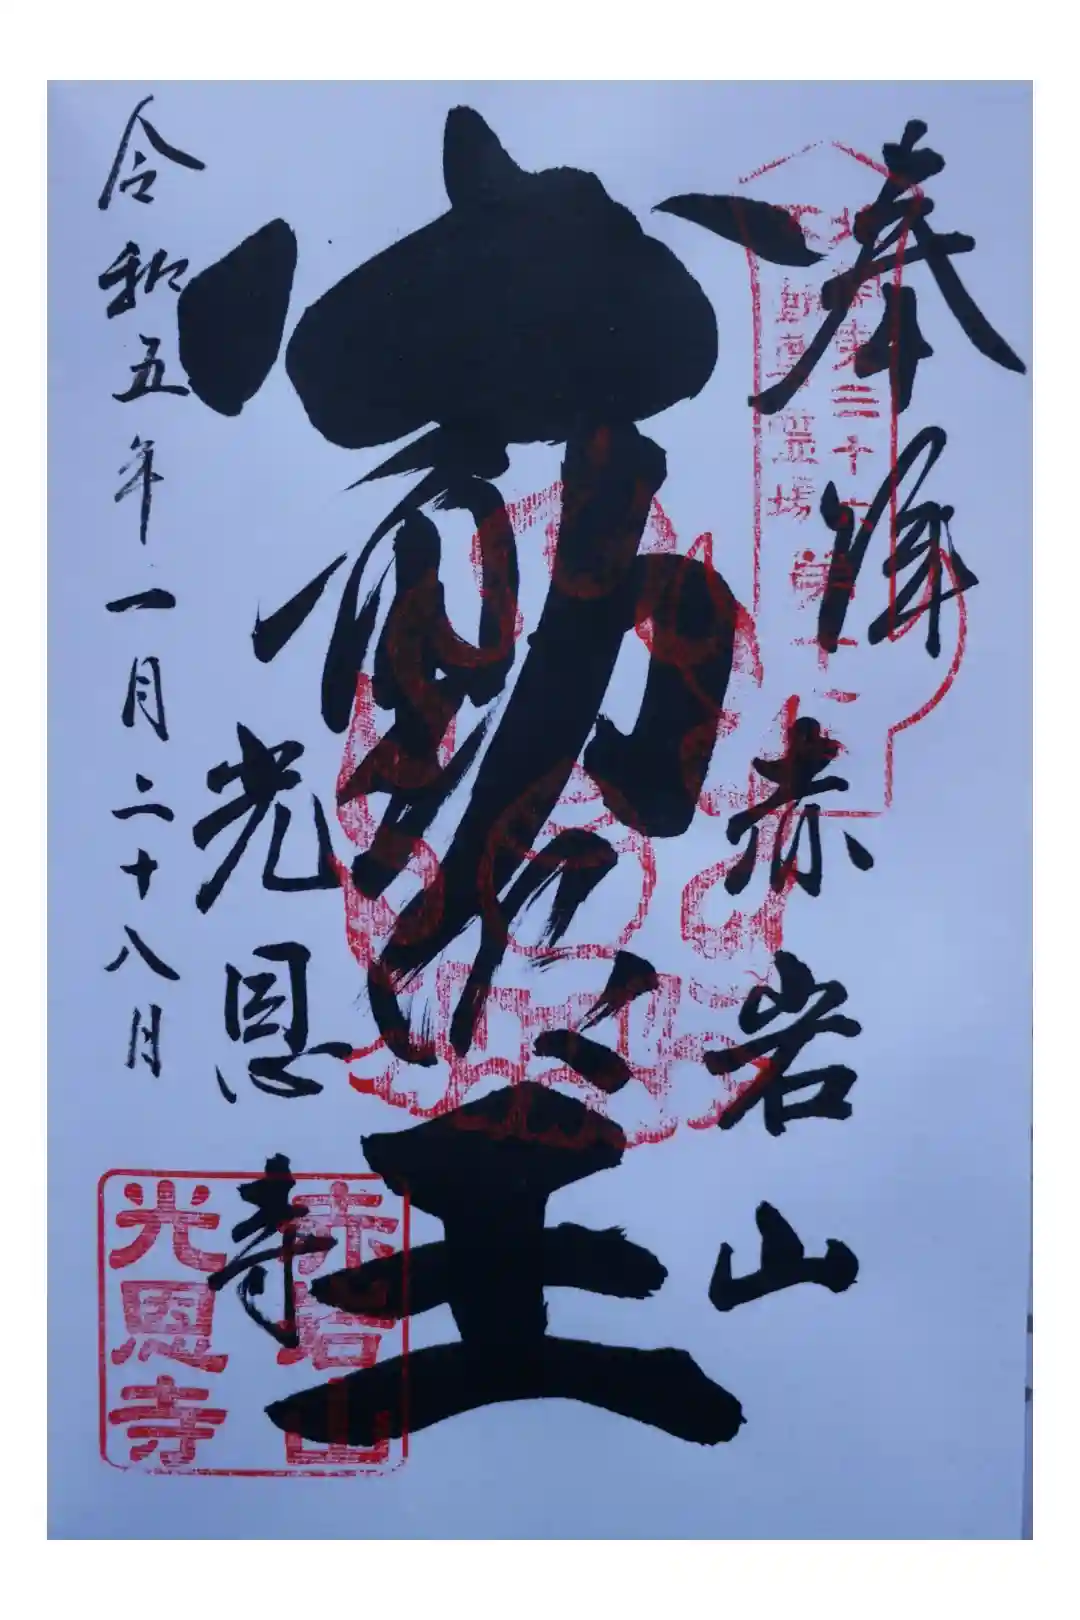 奉拝
赤岩山
不動明王
光恩寺
令和五年一月二十八月
北関東三十六
不動尊霊場
赤岩山
光恩寺